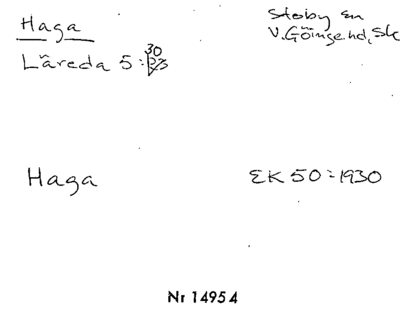 Haga
Stoby sn
V. Göinge hd, Sk
Låreda 5:30
Haga
EK 50 = 1930
Nr 14954